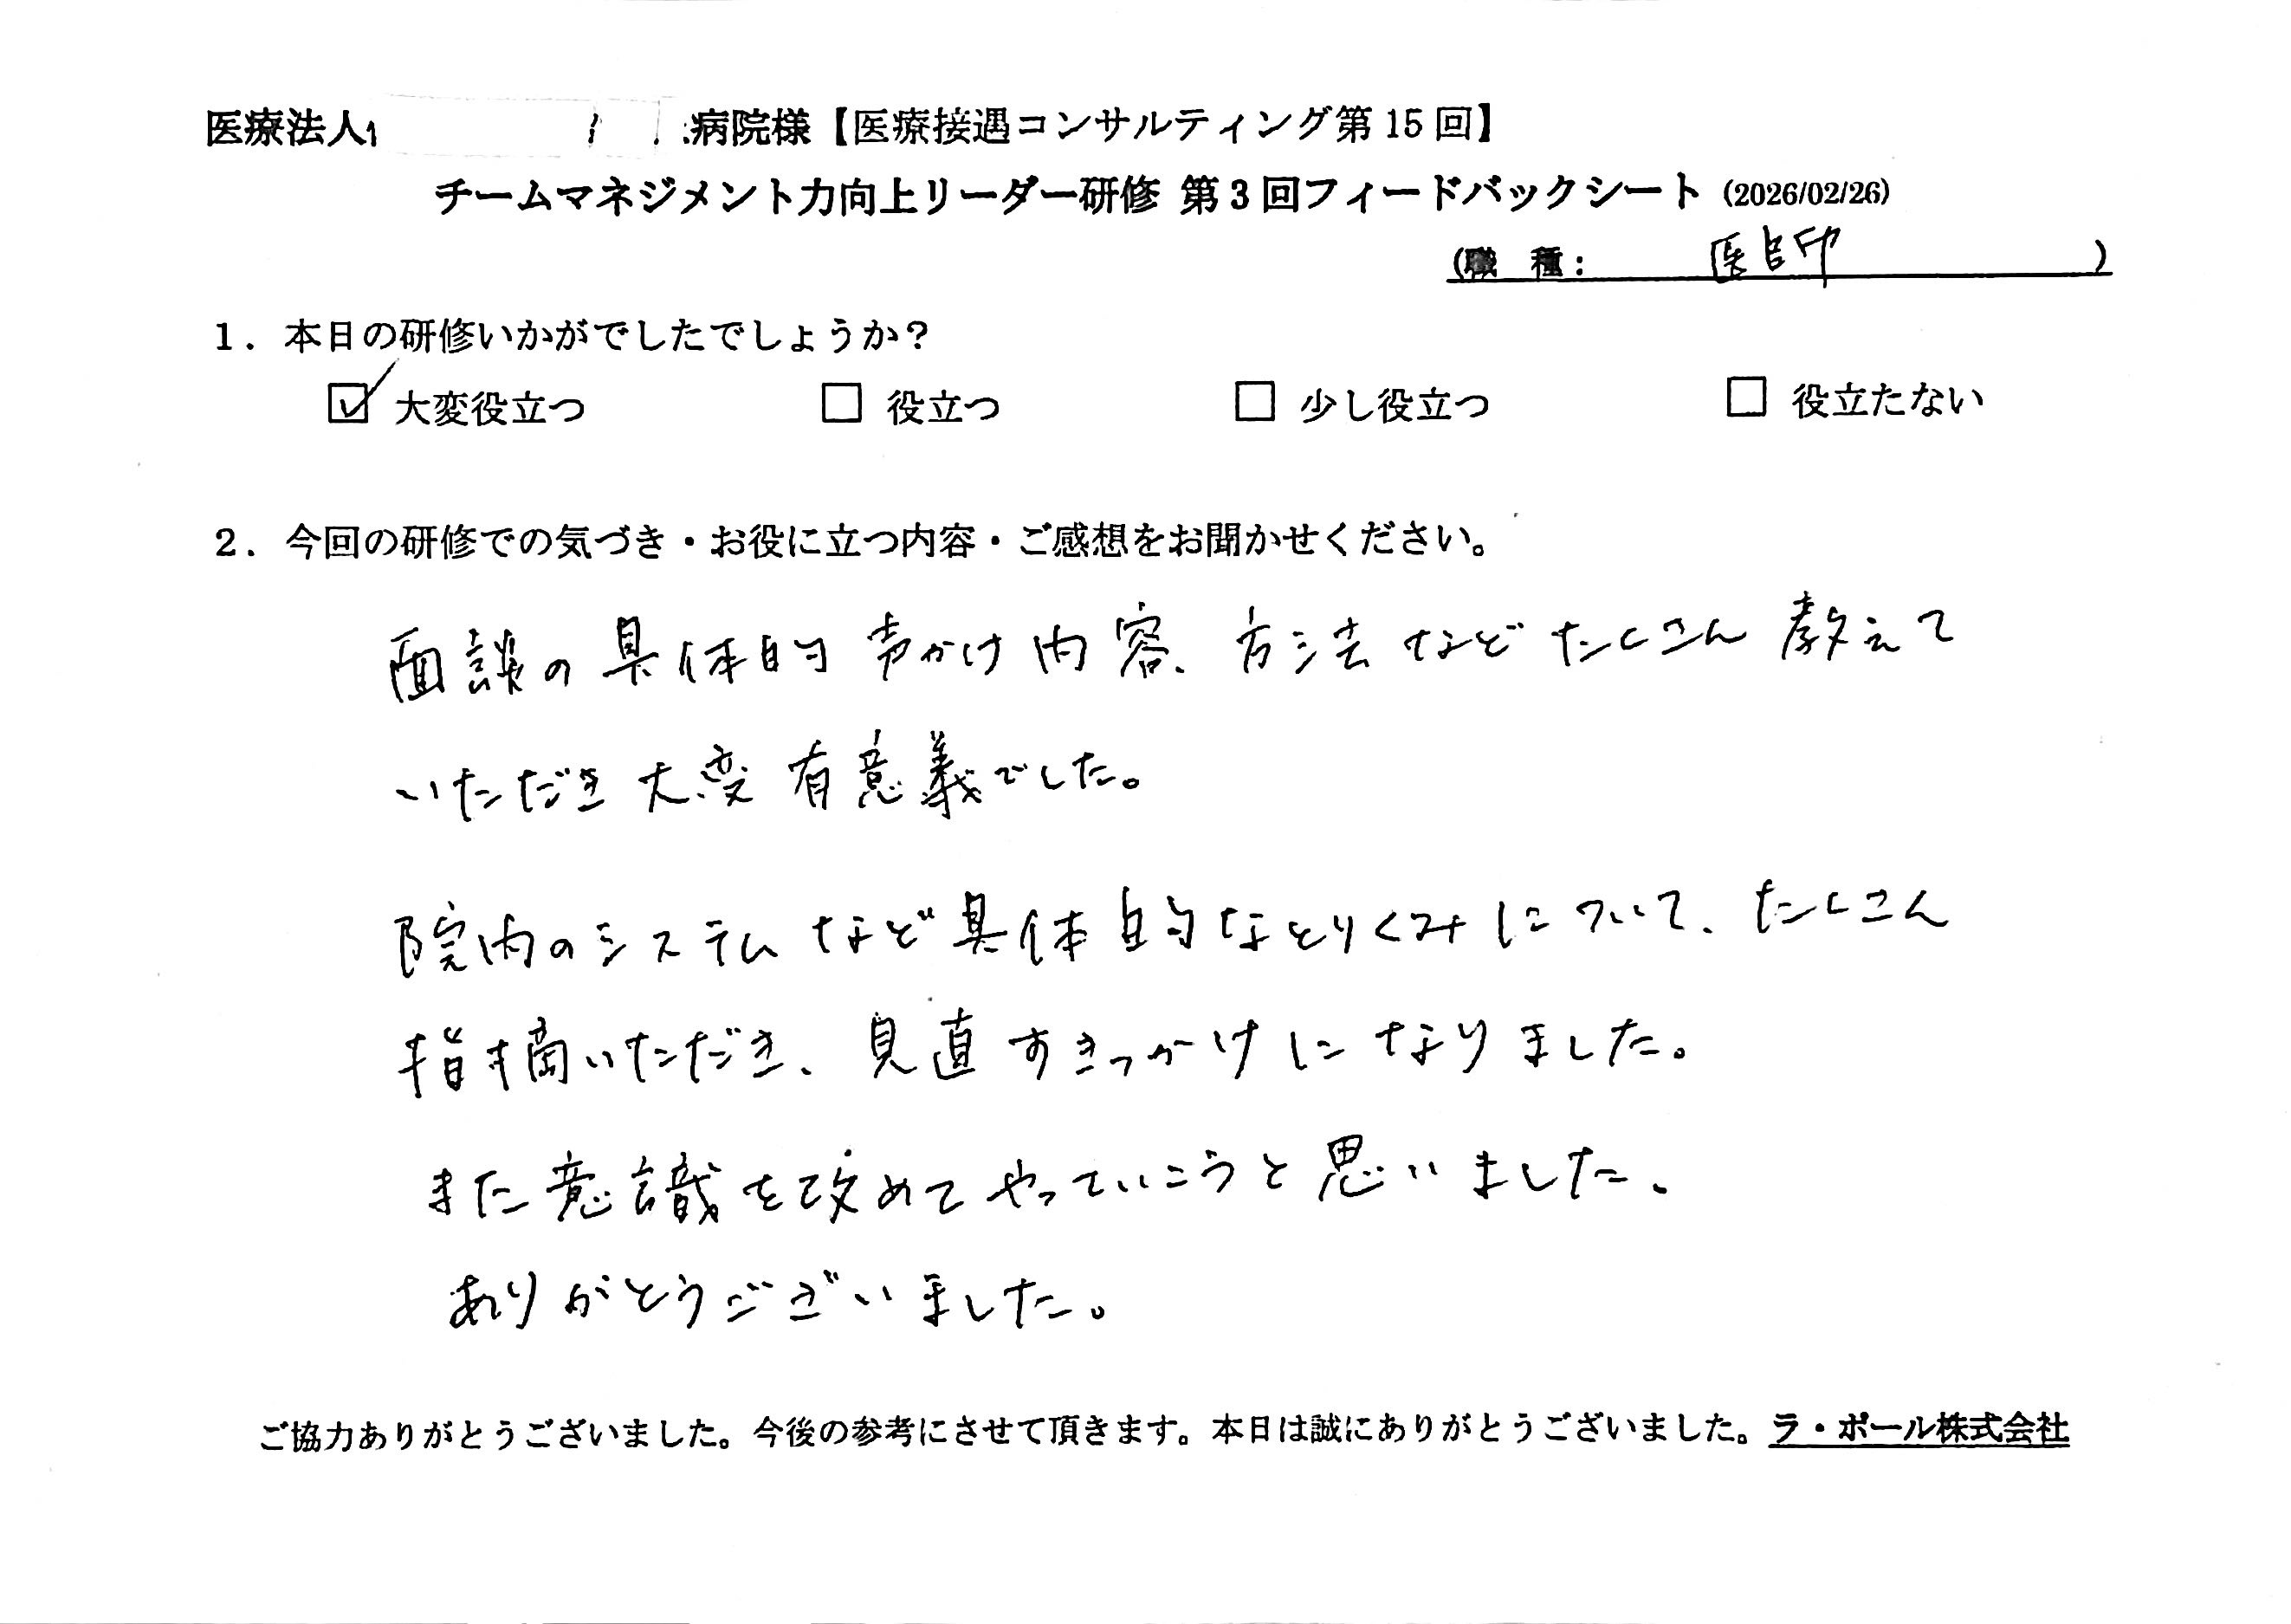 医療法人 病院様【医療接遇コンサルティング第15回】
チームマネジメント力向上リーダー研修 第3回フィードバックシート (2026/02/26)
(職 種: 医師 )
1. 本日の研修いかがでしたでしょうか?
☑ 大変役立つ □ 役立つ □ 少し役立つ □ 役立たない
2. 今回の研修での気づき・お役に立つ内容・ご感想をお聞かせください。
面談の具体的声かけ内容、方法などたくさん教えて
いただき大変有意義でした。
院内のシステムなど具体的なとりくみについて、たくさん
指摘いただき、見直すきっかけになりました。
また意識を改めてやっていこうと思いました、
ありがとうございました。
ご協力ありがとうございました。今後の参考にさせて頂きます。本日は誠にありがとうございました。ラ・ポール株式会社